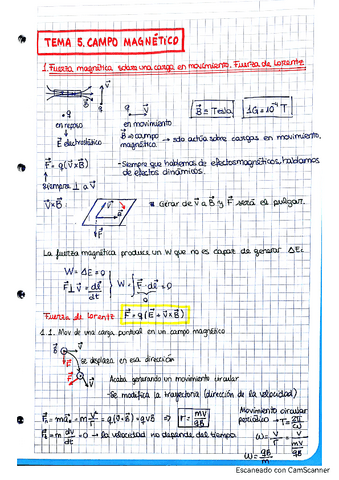 TEMA 5. CAMPO MAGNÉTICO
1. Fuerza magnética sobre una carga en movimiento. Fuerza de Lorentz
B⃗ ≡ Tesla
1G = 10⁻⁴ T
•q
en reposo
↓
E⃗ electrostático
•q → V⃗
en movimiento
B⃗ ≡ campo magnético → sólo actúa sobre cargas en movimiento,
F⃗ = q(V⃗×B⃗)
↑
siempre ⊥ a V⃗
- Siempre que hablemos de efectos magnéticos, hablamos
de efectos dinámicos.
V⃗×B⃗
* Girar de V⃗ a B⃗ y F⃗ será el pulgar.
La fuerza magnética produce un W que no es capaz de generar ΔEc
W = ΔE = 0
F⃗ ⊥ V⃗ = dl⃗/dt
W = ∫F⃗·dl⃗ = 0
0
Fuerza de Lorentz F⃗ = q(E⃗ + V⃗×B⃗)
1.1. Mov de una carga puntual en un campo magnético
B⃗
V⃗
F⃗
se desplaza en esa dirección
Acaba generando un movimiento circular
- Se modifica la trayectoria (dirección de la velocidad)
= m v²/r = q(V⃗×B⃗) = qvB ⇒ r = mv/qB
= m dv/dt = 0 → la velocidad no depende del tiempo
Movimiento circular
periódico → T = 2π/ω
ω = v/r = v/(mv/qB)
ω = qB/m
Escaneado con CamScanner